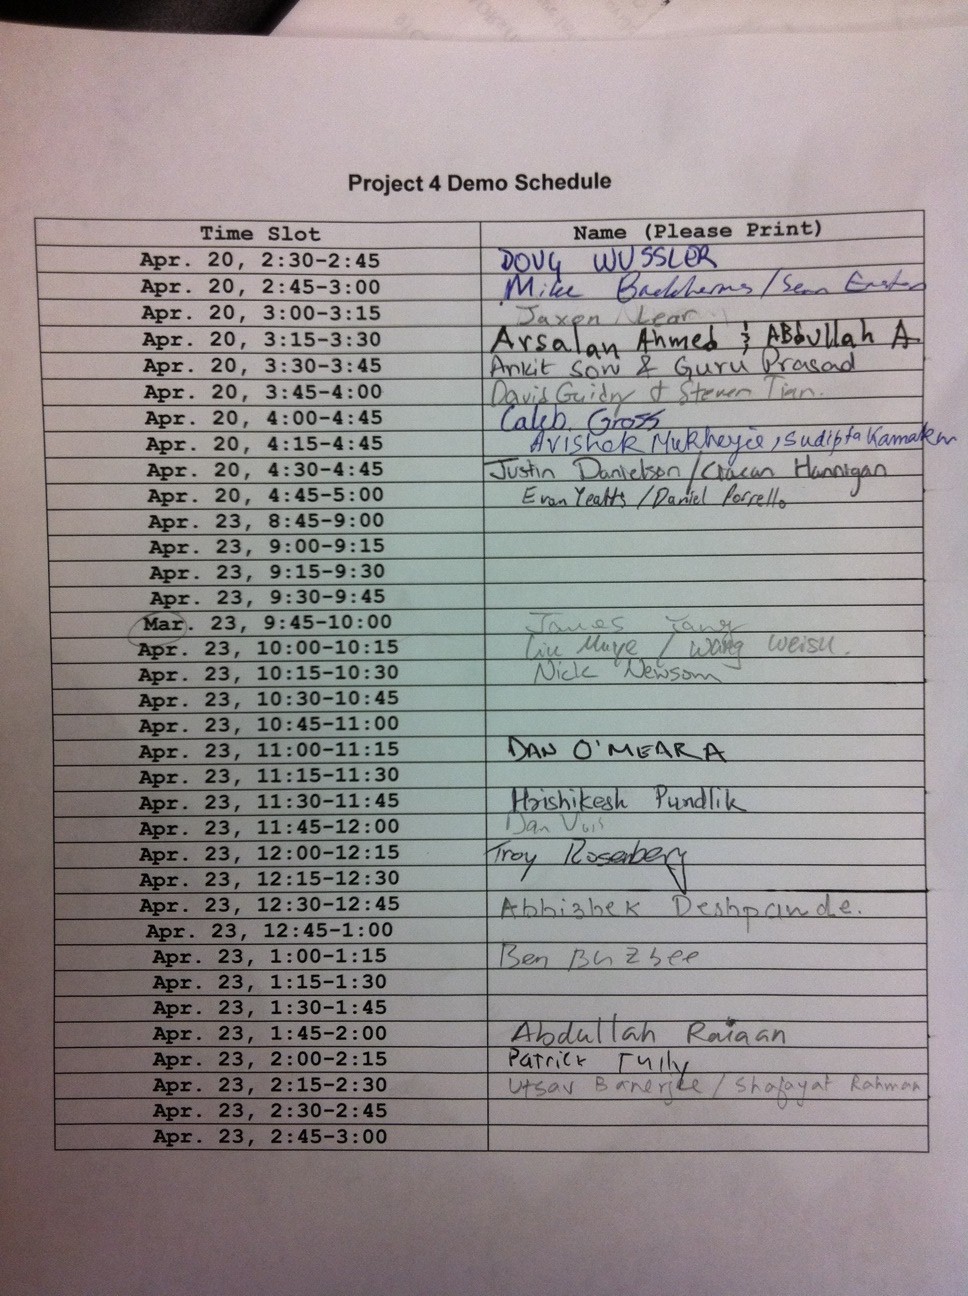 Project 4 Demo Schedule
Time Slot Name (Please Print)
Apr. 20, 2:30-2:45 DOUG WUSSLER
Apr. 20, 2:45-3:00 Mike Backhems/Sean Easton
Apr. 20, 3:00-3:15 Jaxon Lear
Apr. 20, 3:15-3:30 Arsalan Ahmed & ABdullah A
Apr. 20, 3:30-3:45 Ankit Soni & Guru Prasad
Apr. 20, 3:45-4:00 Davis Guidry & Steven Tian.
Apr. 20, 4:00-4:45 Caleb Gross
Apr. 20, 4:15-4:45 Avishek Mukherjee, Sudipta Kamakm
Apr. 20, 4:30-4:45 Justin Danielson / Hannigan
Apr. 20, 4:45-5:00 Evan Yeatts / Daniel Porrello
Apr. 23, 8:45-9:00
Apr. 23, 9:00-9:15
Apr. 23, 9:15-9:30
Apr. 23, 9:30-9:45
Mar. 23, 9:45-10:00 James Yang
Apr. 23, 10:00-10:15 Liu Muye / Wang Weisu.
Apr. 23, 10:15-10:30 Nick Newsom
Apr. 23, 10:30-10:45
Apr. 23, 10:45-11:00
Apr. 23, 11:00-11:15 DAN O'MEARA
Apr. 23, 11:15-11:30
Apr. 23, 11:30-11:45 Hrishikesh Pundlik
Apr. 23, 11:45-12:00 Dan
Apr. 23, 12:00-12:15 Troy Rosenberg
Apr. 23, 12:15-12:30
Apr. 23, 12:30-12:45 Abhishek Deshpande.
Apr. 23, 12:45-1:00
Apr. 23, 1:00-1:15 Ben Buzbee
Apr. 23, 1:15-1:30
Apr. 23, 1:30-1:45
Apr. 23, 1:45-2:00 Abdullah Raiaan
Apr. 23, 2:00-2:15 Patrick Tully
Apr. 23, 2:15-2:30 Utsav Banerjee / Shafayat Rahman
Apr. 23, 2:30-2:45
Apr. 23, 2:45-3:00